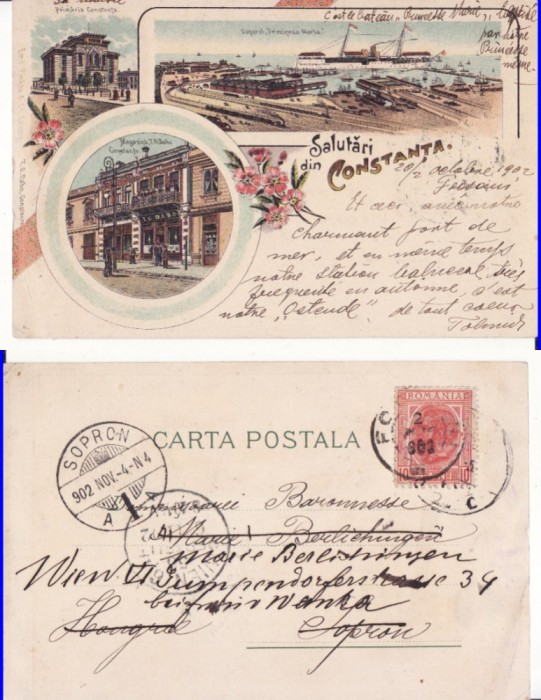 Primăria Constanța
C'est le bateau „Princesse Marie"
par notre
Princesse
même
Vaporul „Principesa Maria"
Magazinul T. G. Dabo
Constanța
Salutări
din CONSTANȚA.
20/2 octobre 1902
Focsani
Et ceci
charmant port de
mer, et en même temps
notre station balnéal très
frequentée en automne, c'est
notre „Ostende" de tout coeur
ROMANIA
10
902
SOPRON
902 NOV.-4-N4
A
1
CARTA POSTALA
C
Baronnesse
Marie Berlichingen
Marie Berlichingen
Wien VI Gumpendorferstrasse 34
bei Frau Wanka
Hongrie Sopron